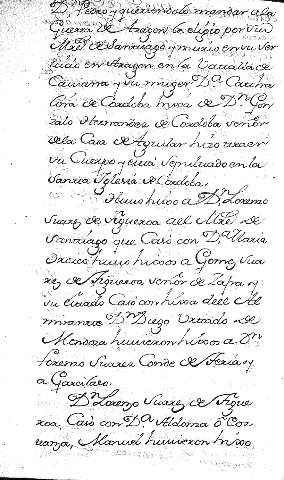 Dn. Pedro, y queriendolo mandar a la
Guerra de Aragon le eligio, por su
Mre. de Santiago y murio en su ser
vicio en Aragon en la
y su muger Da. Catha
lina de Cordoba hixa de Dn. Gon
zalo Hernandez de Cordoba señor
de la Casa de Aguilar
su Cuerpo, y está sepultado en la
Santa Iglesia de Cordoba.
Hubo hixos a Dn. Lorenso
Suarez de Figueroa el Mre. de
Santiago que Casó con Da. Maria
hubo hixos a Gomez Sua
rez de Figueroa señor de Zafra, y
su estado Casó con hixa del Al
mirante Dn. Diego Urtado de
Mendoza hubieron hixos a Dn.
Lorenso Suarez Conde de Feria, y
a Garcilaso.
Dn. Lorenso Suarez de Figue
roa, Casó con Da. Aldonsa
Manuel hubieron hixos